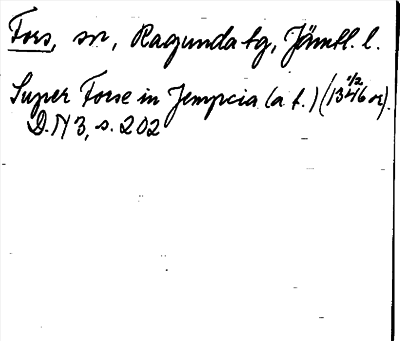 Fors, sn, Ragunda tg, Jämtl. l.
Super Forse in Jempcia (a t.) (13 1/2 46 or).
D. N 3, s. 202